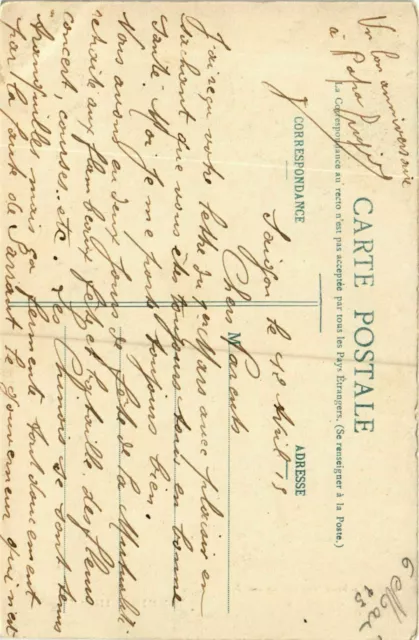 Un bon anniversaire
à Papa
CARTE POSTALE
La Correspondance au recto n'est pas acceptée par tous les Pays Étrangers. (Se renseigner à la Poste.)
CORRESPONDANCE
ADRESSE
M
Saigon le 18 Avril 15
Chers Parents
J'ai reçu votre lettre du 1er Mars avec plaisir en
sachant que vous êtes toujours tous en bonne
santé. Moi je me porte toujours bien.
Nous avons eu deux jours de fête de la Mutualité
retraite aux flambeaux et bataille de fleurs
concert, courses, etc. Les se sont tenus
tranquilles mais ça fermente tout doucement
par la faute de Sarraut le Gouverneur qui n'est